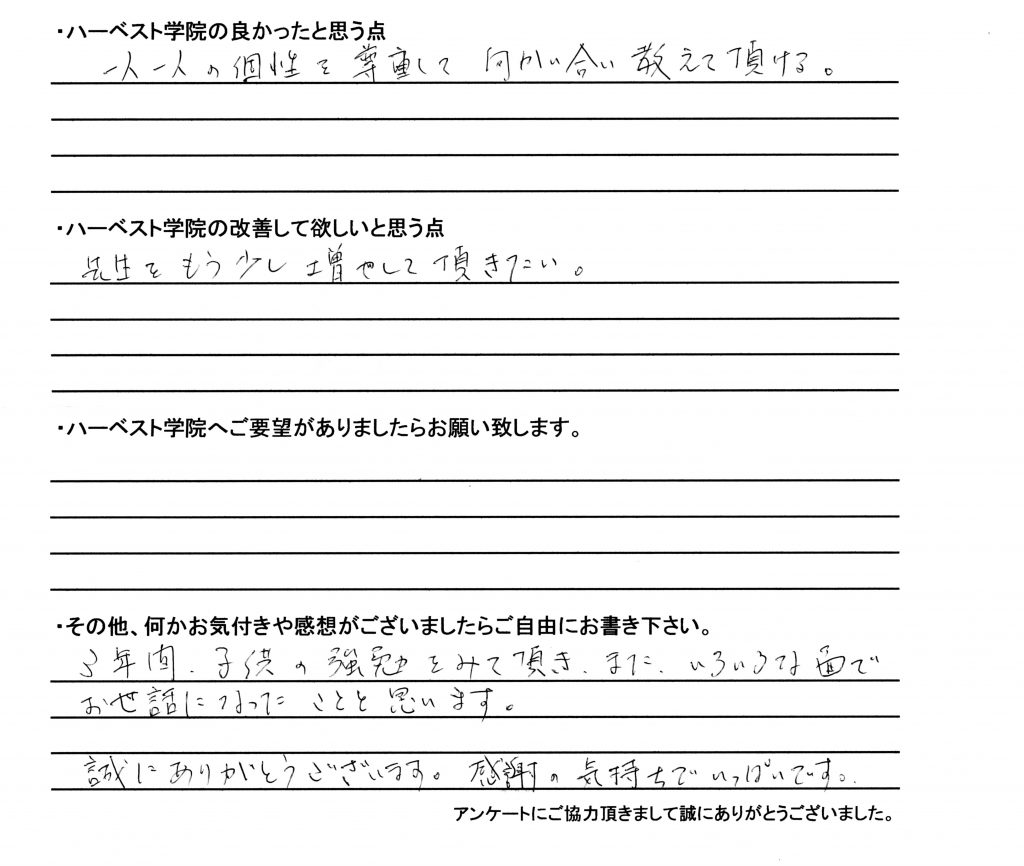 ・ハーベスト学院の良かったと思う点
一人一人の個性を尊重して向かい合い教えて頂ける。
・ハーベスト学院の改善して欲しいと思う点
先生をもう少し増やして頂きたい。
・ハーベスト学院へご要望がありましたらお願い致します。
・その他、何かお気付きや感想がございましたらご自由にお書き下さい。
3年間、子供の強勉をみて頂き、また、いろいろな面で
お世話になったことと思います。
誠にありがとうございます。感謝の気持ちでいっぱいです。
アンケートにご協力頂きまして誠にありがとうございました。